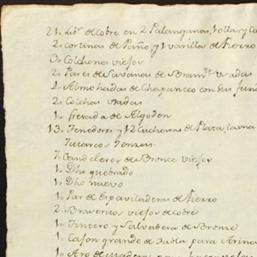 21. Lib.s de Cobre en 2 Palanganas, 1 olla, y Co
2. Cortinas de Paño, y 1 varilla de Fierro
3. Colchones viejos
2. Pares de Savanas de Bram.te usadas
2. Almohadas de Chapaneco con sus fun
2. Colchas usadas
1. frezada de Algodon
13. Tenedores y 12 Cucharas de Plata
7. Candeleros de Bronce viejos
1. Dho quebrado
1. Dho nuevo
1. Par de Espaviladeras de Fierro
2. Braseritos viejos de cobre
1. Tintero y Salvadera de Bronce
1. Cajon grande de Tabla para Arina
1. Aro de